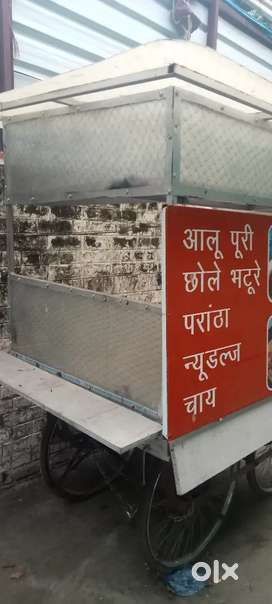 आलू पूरी
छोले भटूरे
परांठा
न्यूडल्ज
चाय
olx